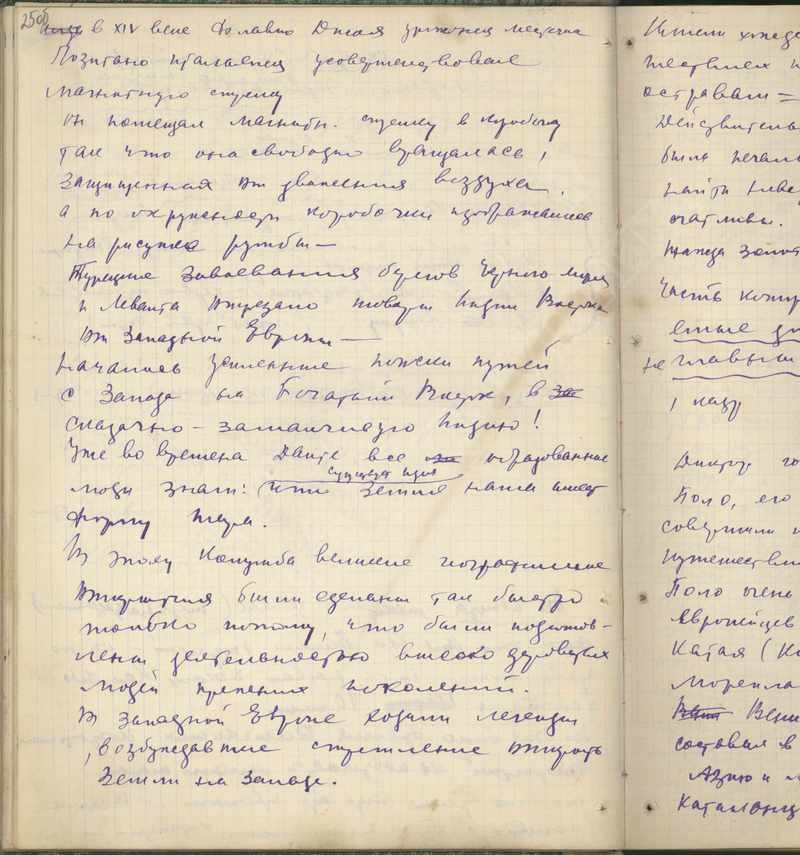 250б
в XIV веке Флавио Джая уроженец местечка
Позитано пытается усовершенствовать
магнитную стрелку
он помещал магнитн. стрелку в коробочку
так что она свободно вращалась,
защищенная от движения воздуха,
а по окружности коробочки изображались
на рисунке румбы —
Турецкие завоевания берегов Черного моря
и Леванта отрезало товары Индии Востока
от Западной Европы —
начались усиленные поиски путей
с Запада на Богатый Восток, в
сказочно-заманчивую Индию!
Уже во времена Данте все образованные
существует идея
люди знали: что Земля наша имеет
форму шара.
В эпоху Колумба великие географические
открытия были сделаны так быстро
только потому, что были подготов-
лены деятельностью высоко даровитых
людей прежних поколений.
В Западной Европе ходили легенды
, возбуждавшие стремление открыть
Земли на Западе.
острова =
Действитель
были
найти
жажда золот
Часть
главным
не
Поло, его
совершили
путешестви
Поло очень
Европейцев
Катая (К
морепла
составил в
Азию и